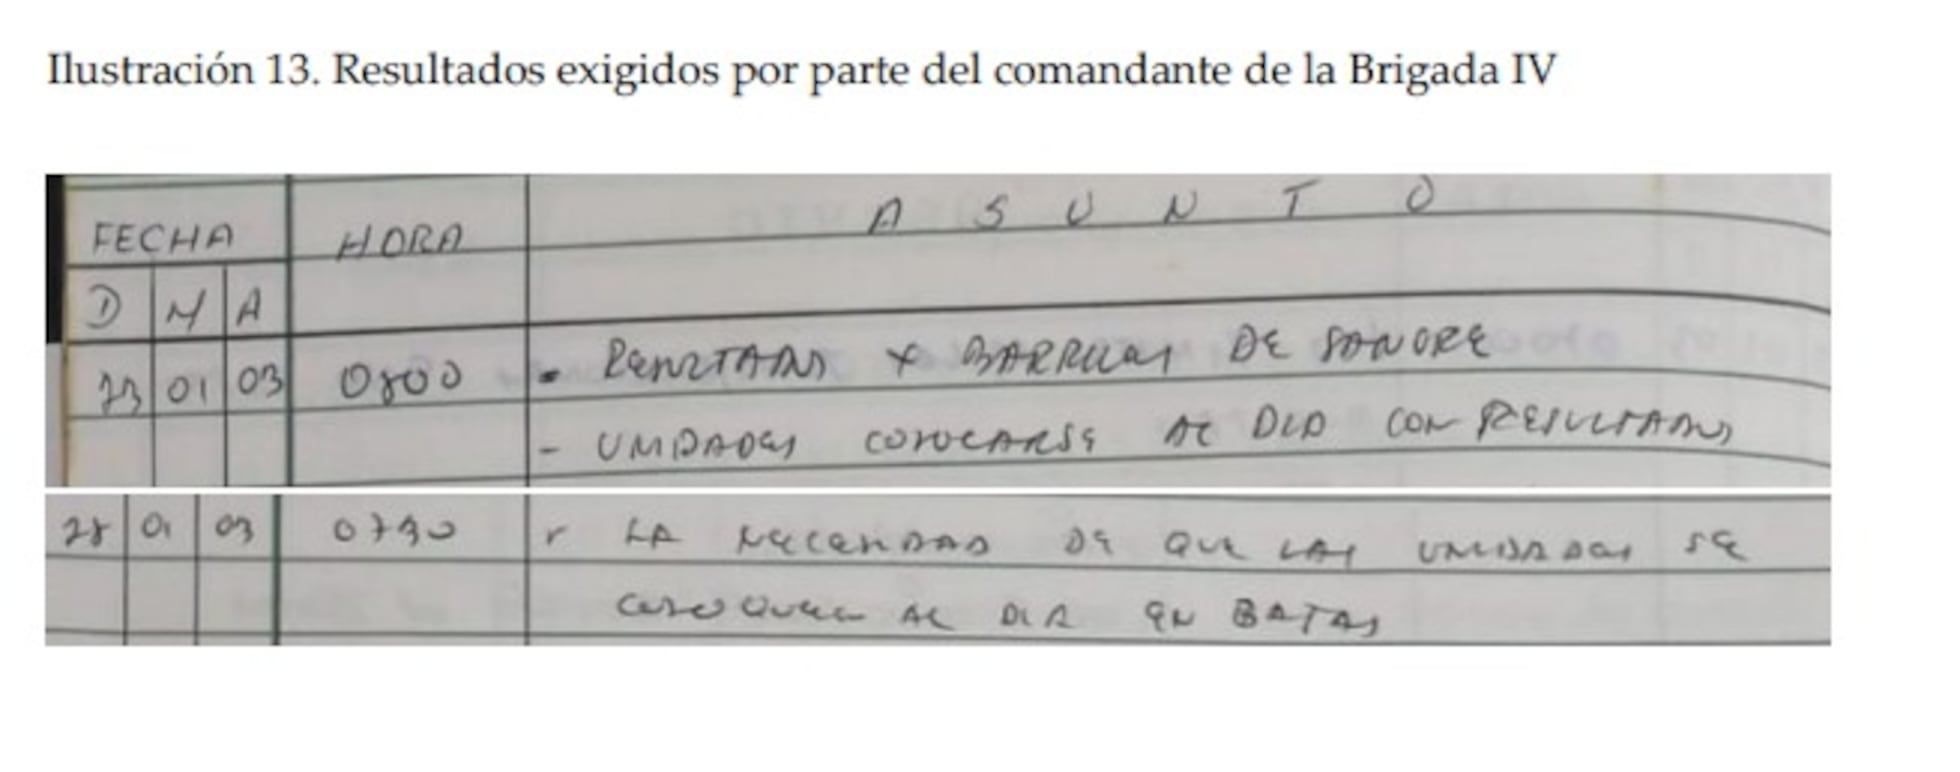 Ilustración 13. Resultados exigidos por parte del comandante de la Brigada IV
FECHA HORA ASUNTO
D M A
23 01 03 0800 - RESULTADOS X BARRILES DE SANGRE
- UNIDADES COLOCARSE AL DIA CON RESULTADOS
28 01 03 0730 LA NECESIDAD DE QUE LAS UNIDADES SE
COLOQUEN AL DIA EN BAJAS